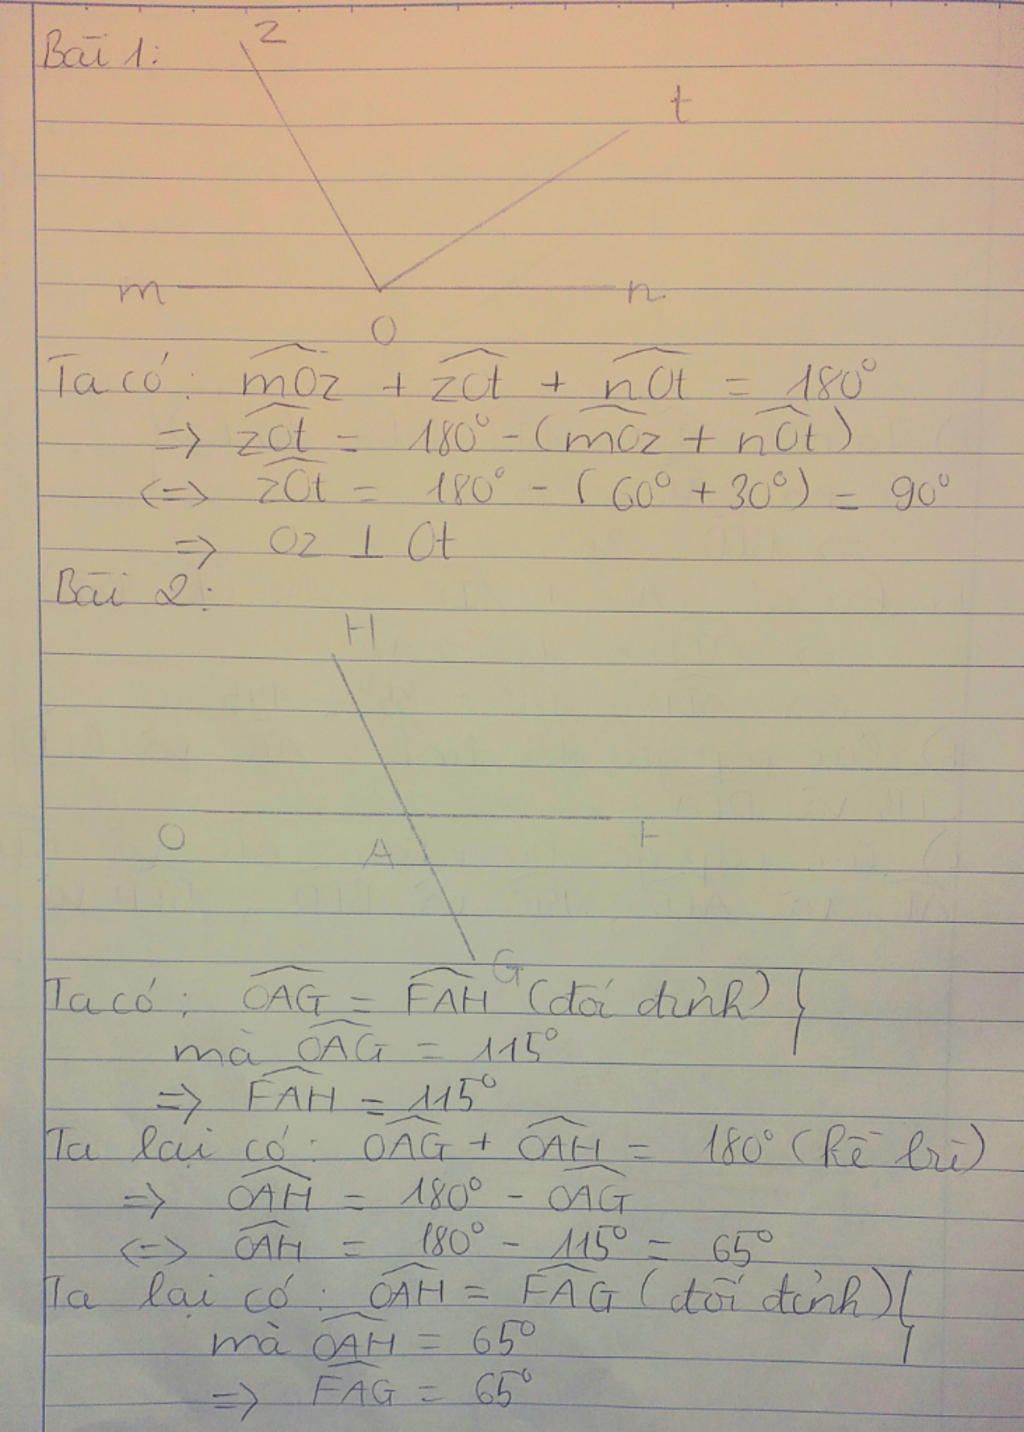 Bài 1:
z
t
m
n
O
Ta có: mOz + zOt + nOt = 180°
=> zOt = 180° - (mOz + nOt)
<=> zOt = 180° - (60° + 30°) = 90°
=> Oz ⊥ Ot
Bài 2:
H
O
A
F
G
Ta có: OAG = FAH (đối đỉnh) }
mà OAG = 115°
=> FAH = 115°
Ta lại có: OAG + OAH = 180° (kề bù)
=> OAH = 180° - OAG
<=> OAH = 180° - 115° = 65°
Ta lại có: OAH = FAG (đối đỉnh) }
mà OAH = 65°
=> FAG = 65°